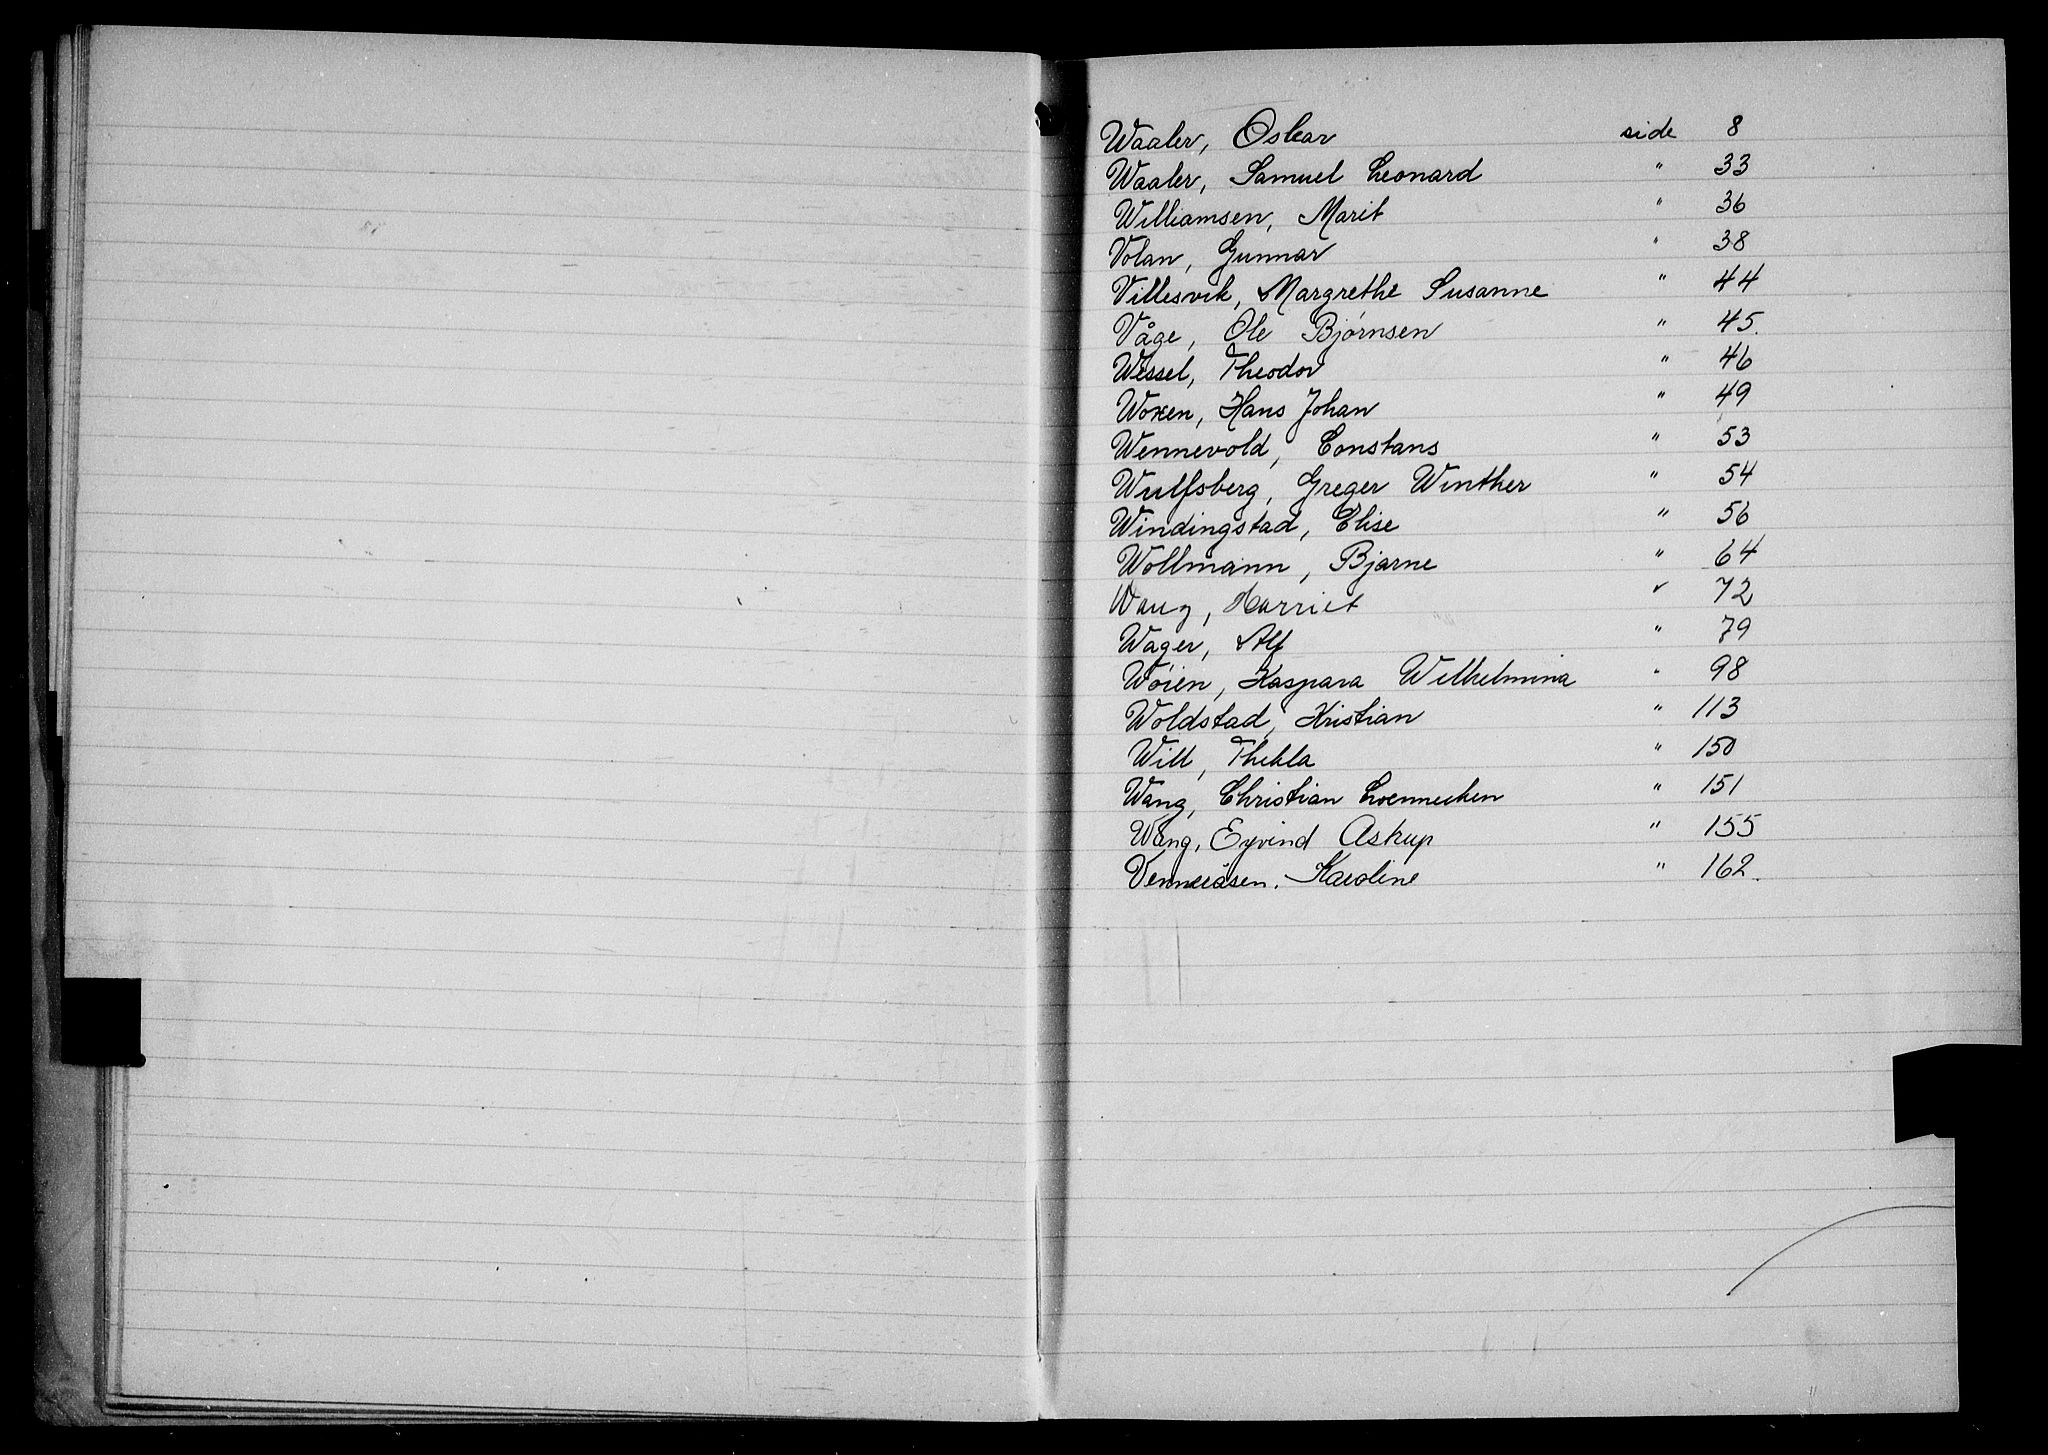 Waaler, Oskar side 8
Waaler, Samuel Leonard " 33
Williamsen, Marit " 36
Volan, Gunnar " 38
Villesvik, Margrethe Susanne " 44
Våge, Ole Bjørnsen " 45.
Wessel, Theodor " 46
Woxen, Hans Johan " 49
Wennevold, Constans " 53
Wulfsberg, Greger Winther " 54
Windingstad, Elise " 56
Wollmann, Bjarne " 64
Wang, Harriet " 72
Wager, Alf " 79
Wøien, Kaspara Wilhelmina " 98
Woldstad, Kristian " 113
Will, Thekla " 150
Wang, Christian Loennecken " 151
Wang, Eyvind Astrup " 155
Venneråsen. Karoline " 162.